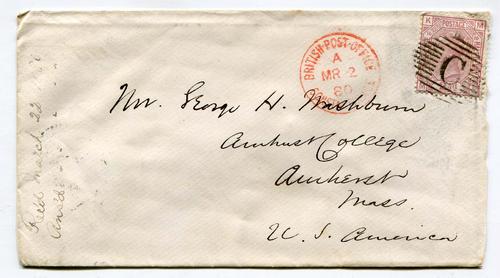 BRITISH-POST-OFFICE
A
MR 2
80
K M
POSTAGE
C
Mr. George H. Washburn
Amherst College
Amherst
Mass.
U. S. America
Recd March 22
Ansd